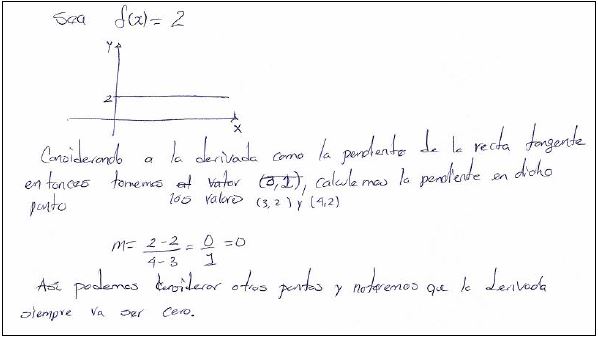 Sea f(x) = 2
Y
2
X
Considerando a la derivada como la pendiente de la recta tangente
entonces tomemos el valor (3,1), calculemos la pendiente en dicho
punto los valores (3,2) y (4,2)
m = \frac{2-2}{4-3} = \frac{0}{1} = 0
Asi podemos considerar otros puntos y notaremos que la derivada
siempre va ser cero.